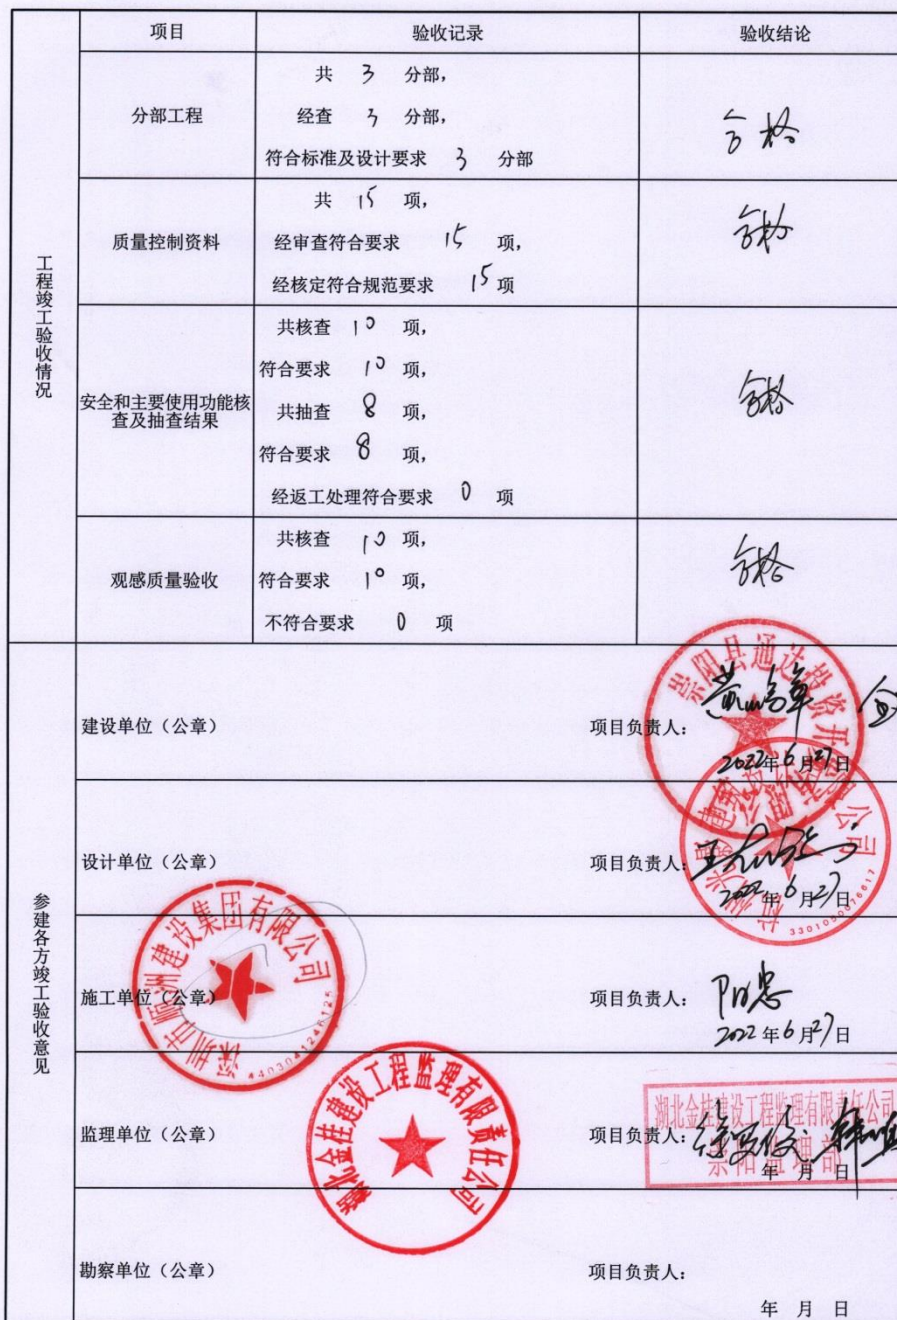 项目 验收记录 验收结论
工程竣工验收情况
分部工程
共 3 分部，
经查 3 分部，
符合标准及设计要求 3 分部
合格
质量控制资料
共 15 项，
经审查符合要求 15 项，
经核定符合规范要求 15 项
合格
安全和主要使用功能核
查及抽查结果
共核查 10 项，
符合要求 10 项，
共抽查 8 项，
符合要求 8 项，
经返工处理符合要求 0 项
合格
观感质量验收
共核查 10 项，
符合要求 10 项，
不符合要求 0 项
合格
参建各方竣工验收意见
建设单位（公章） 项目负责人：
崇阳县通达投资开
2022年6月27日
设计单位（公章） 项目负责人：
2022年6月27日
3301050076617
施工单位（公章） 项目负责人：
深圳市顺洲建设集团有限公司
2022年6月27日
监理单位（公章） 项目负责人：
湖北金桂建设工程监理有限责任公司
湖北金桂建设工程监理有限责任公司
崇阳监理部
年 月 日
勘察单位（公章） 项目负责人：
年 月 日